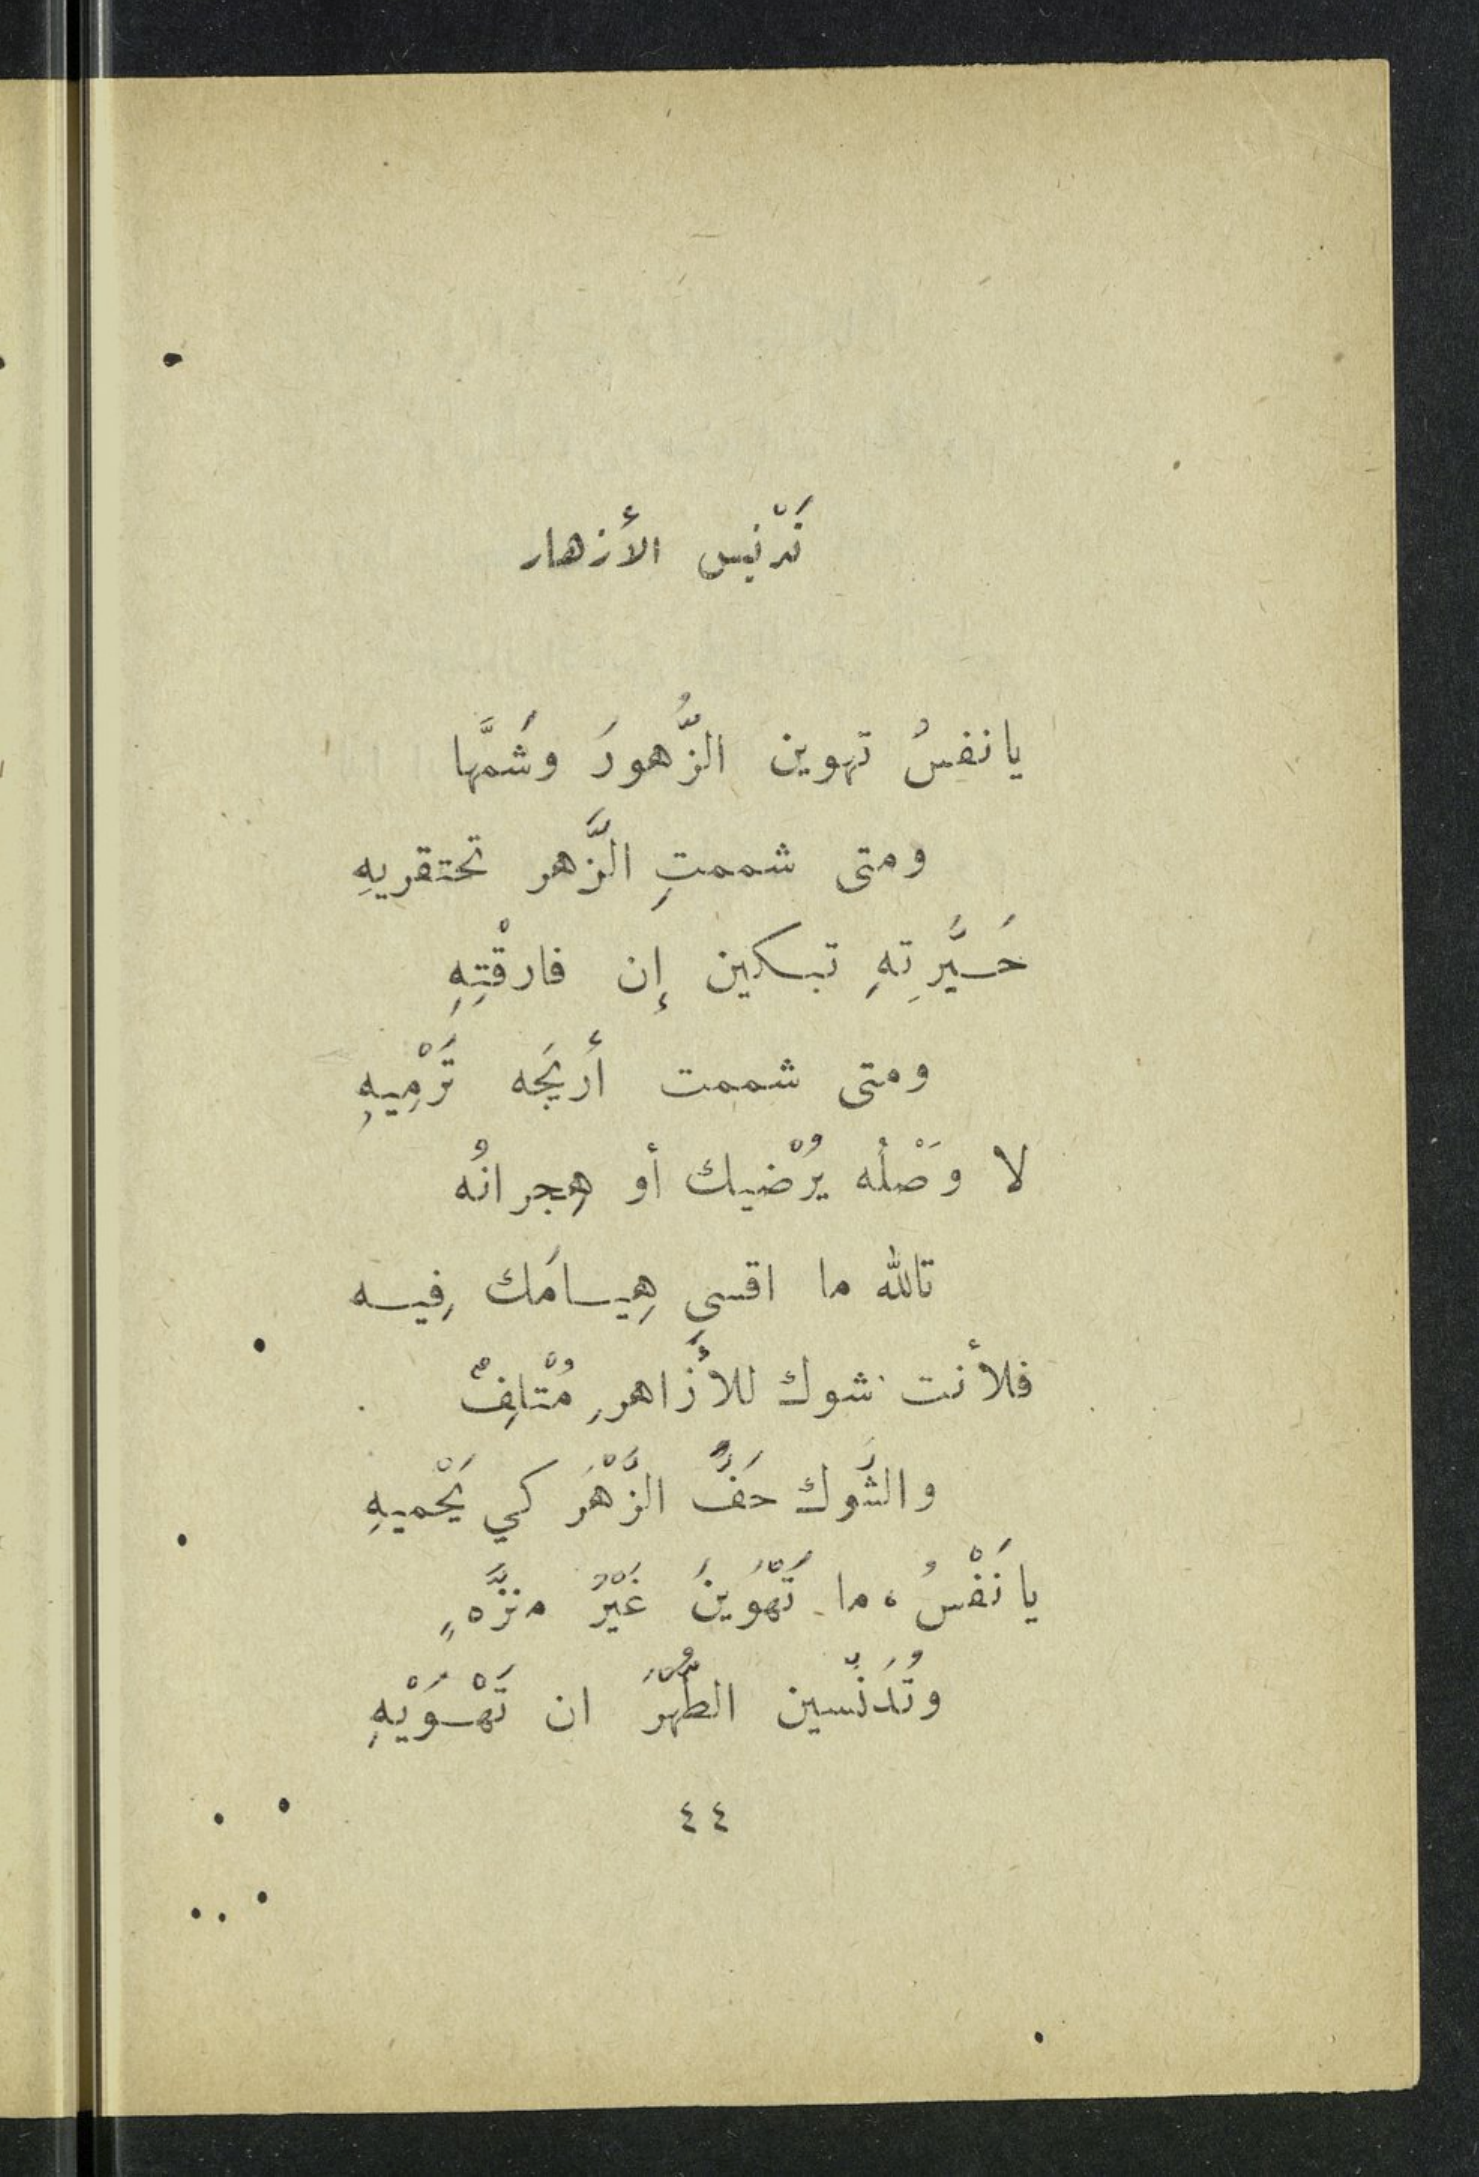 تَدْنيس الأزهار
يا نفسُ تهوين الزُّهورَ وشَمَّها
ومتى شممتِ الزَّهر تحتقريهِ
حَيَّرتِهِ تبكين إن فارقْتِهِ
ومتى شممت أريجَه تَرْمِيهِ
لا وَصْلُه يُرْضيك أو هِجرانُه
تالله ما اقسى هِيامَك فِيه
فلأنت شوك للأَزاهرِ مُتْلِفٌ
والشَّوك حَفَّ الزَّهْرَ كي يَحْميهِ
يا نَفْسُ، ما تَهْوَينَ غَيْرَ منزَّهٍ
وتُدَنِّسين الطُّهْرَ ان تَهْوَيْهِ
٤٤